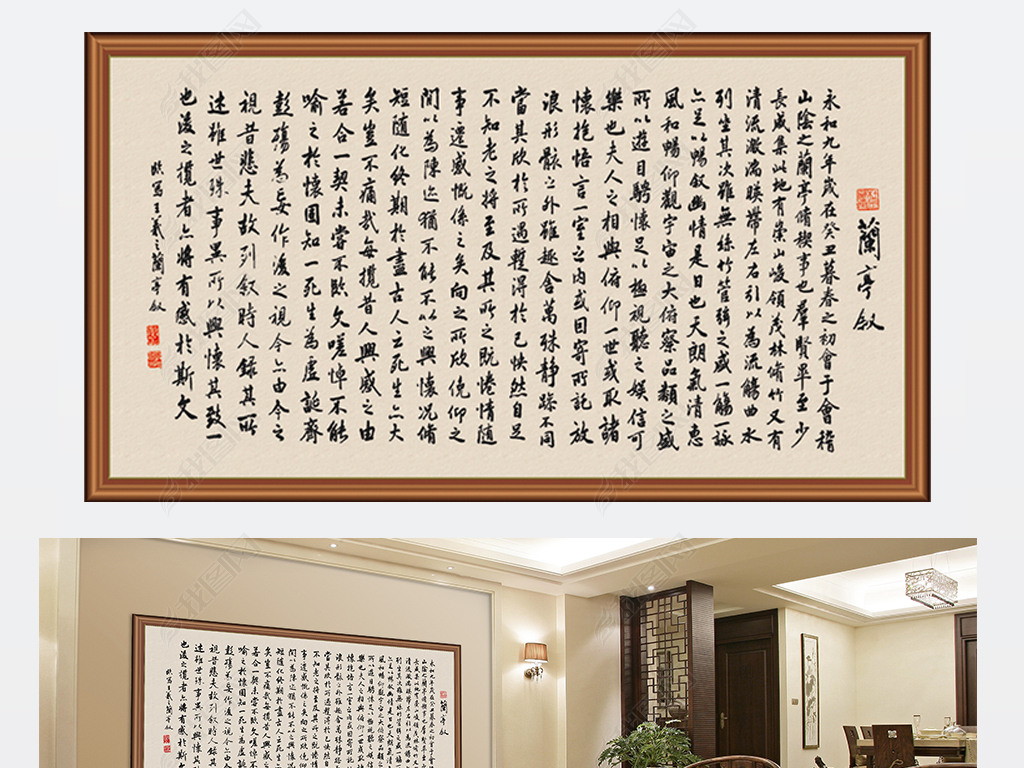 蘭亭叙
永和九年歲在癸丑暮春之初會于會稽
山陰之蘭亭脩稧事也羣賢畢至少
長咸集此地有崇山峻領茂林脩竹又有
清流激湍暎帶左右引以為流觴曲水
列坐其次雖無絲竹管弦之盛一觴一詠
亦足以暢叙幽情是日也天朗氣清惠
風和暢仰觀宇宙之大俯察品類之盛
所以遊目騁懷足以極視聽之娛信可
樂也夫人之相與俯仰一世或取諸
懷抱悟言一室之內或因寄所託放
浪形骸之外雖趣舍萬殊静躁不同
當其欣於所遇蹔得於己怏然自足
不知老之將至及其所之既惓情隨
事遷感慨係之矣向之所欣俛仰之
閒以為陳迹猶不能不以之興懷況脩
短隨化終期於盡古人云死生亦大
矣豈不痛哉每攬昔人興感之由
若合一契未嘗不臨文嗟悼不能
喻之於懷固知一死生為虛誕齊
彭殤為妄作後之視今亦由今之
視昔悲夫故列叙時人錄其所
述雖世殊事異所以興懷其致一
也後之攬者亦將有感於斯文
臨寫王羲之蘭亭叙